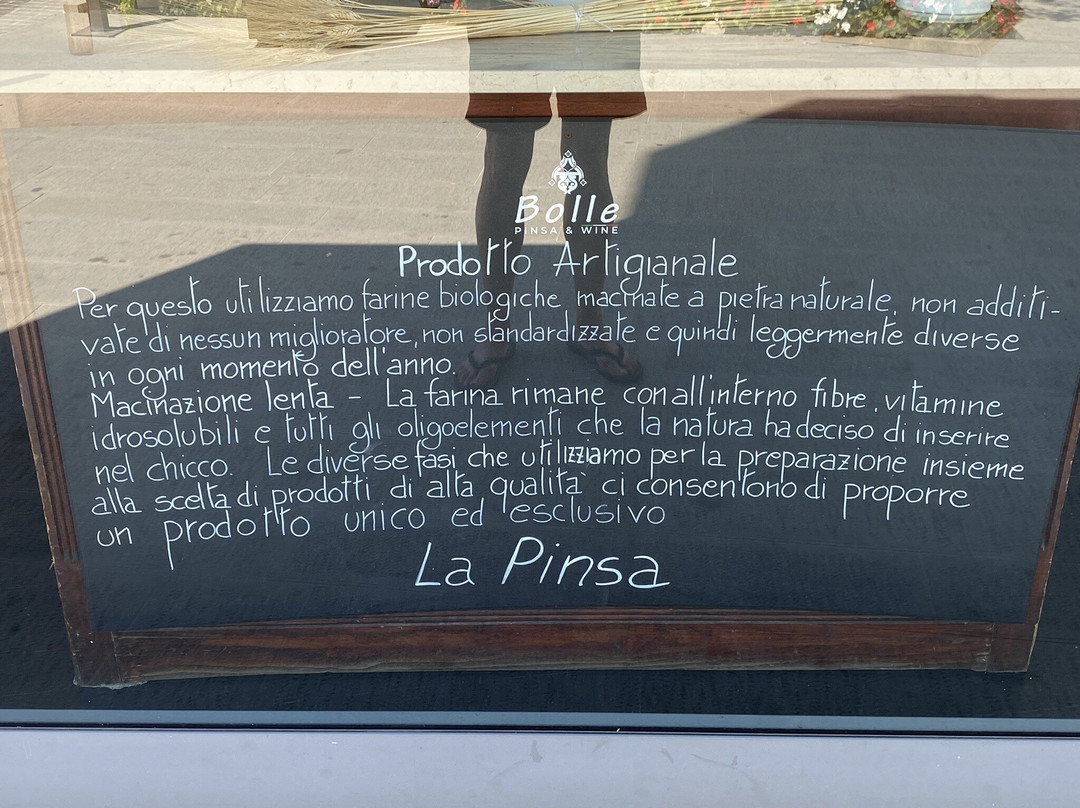 Bolle
PINSA & WINE
Prodotto Artigianale
Per questo utilizziamo farine biologiche macinate a pietra naturale, non additi-
vate di nessun miglioratore, non standardizzate e quindi leggermente diverse
in ogni momento dell'anno.
Macinazione lenta - La farina rimane con all'interno fibre, vitamine
idrosolubili e tutti gli oligoelementi che la natura ha deciso di inserire
nel chicco. Le diverse fasi che utilizziamo per la preparazione insieme
alla scelta di prodotti di alta qualità ci consentono di proporre
un prodotto unico ed esclusivo
La Pinsa